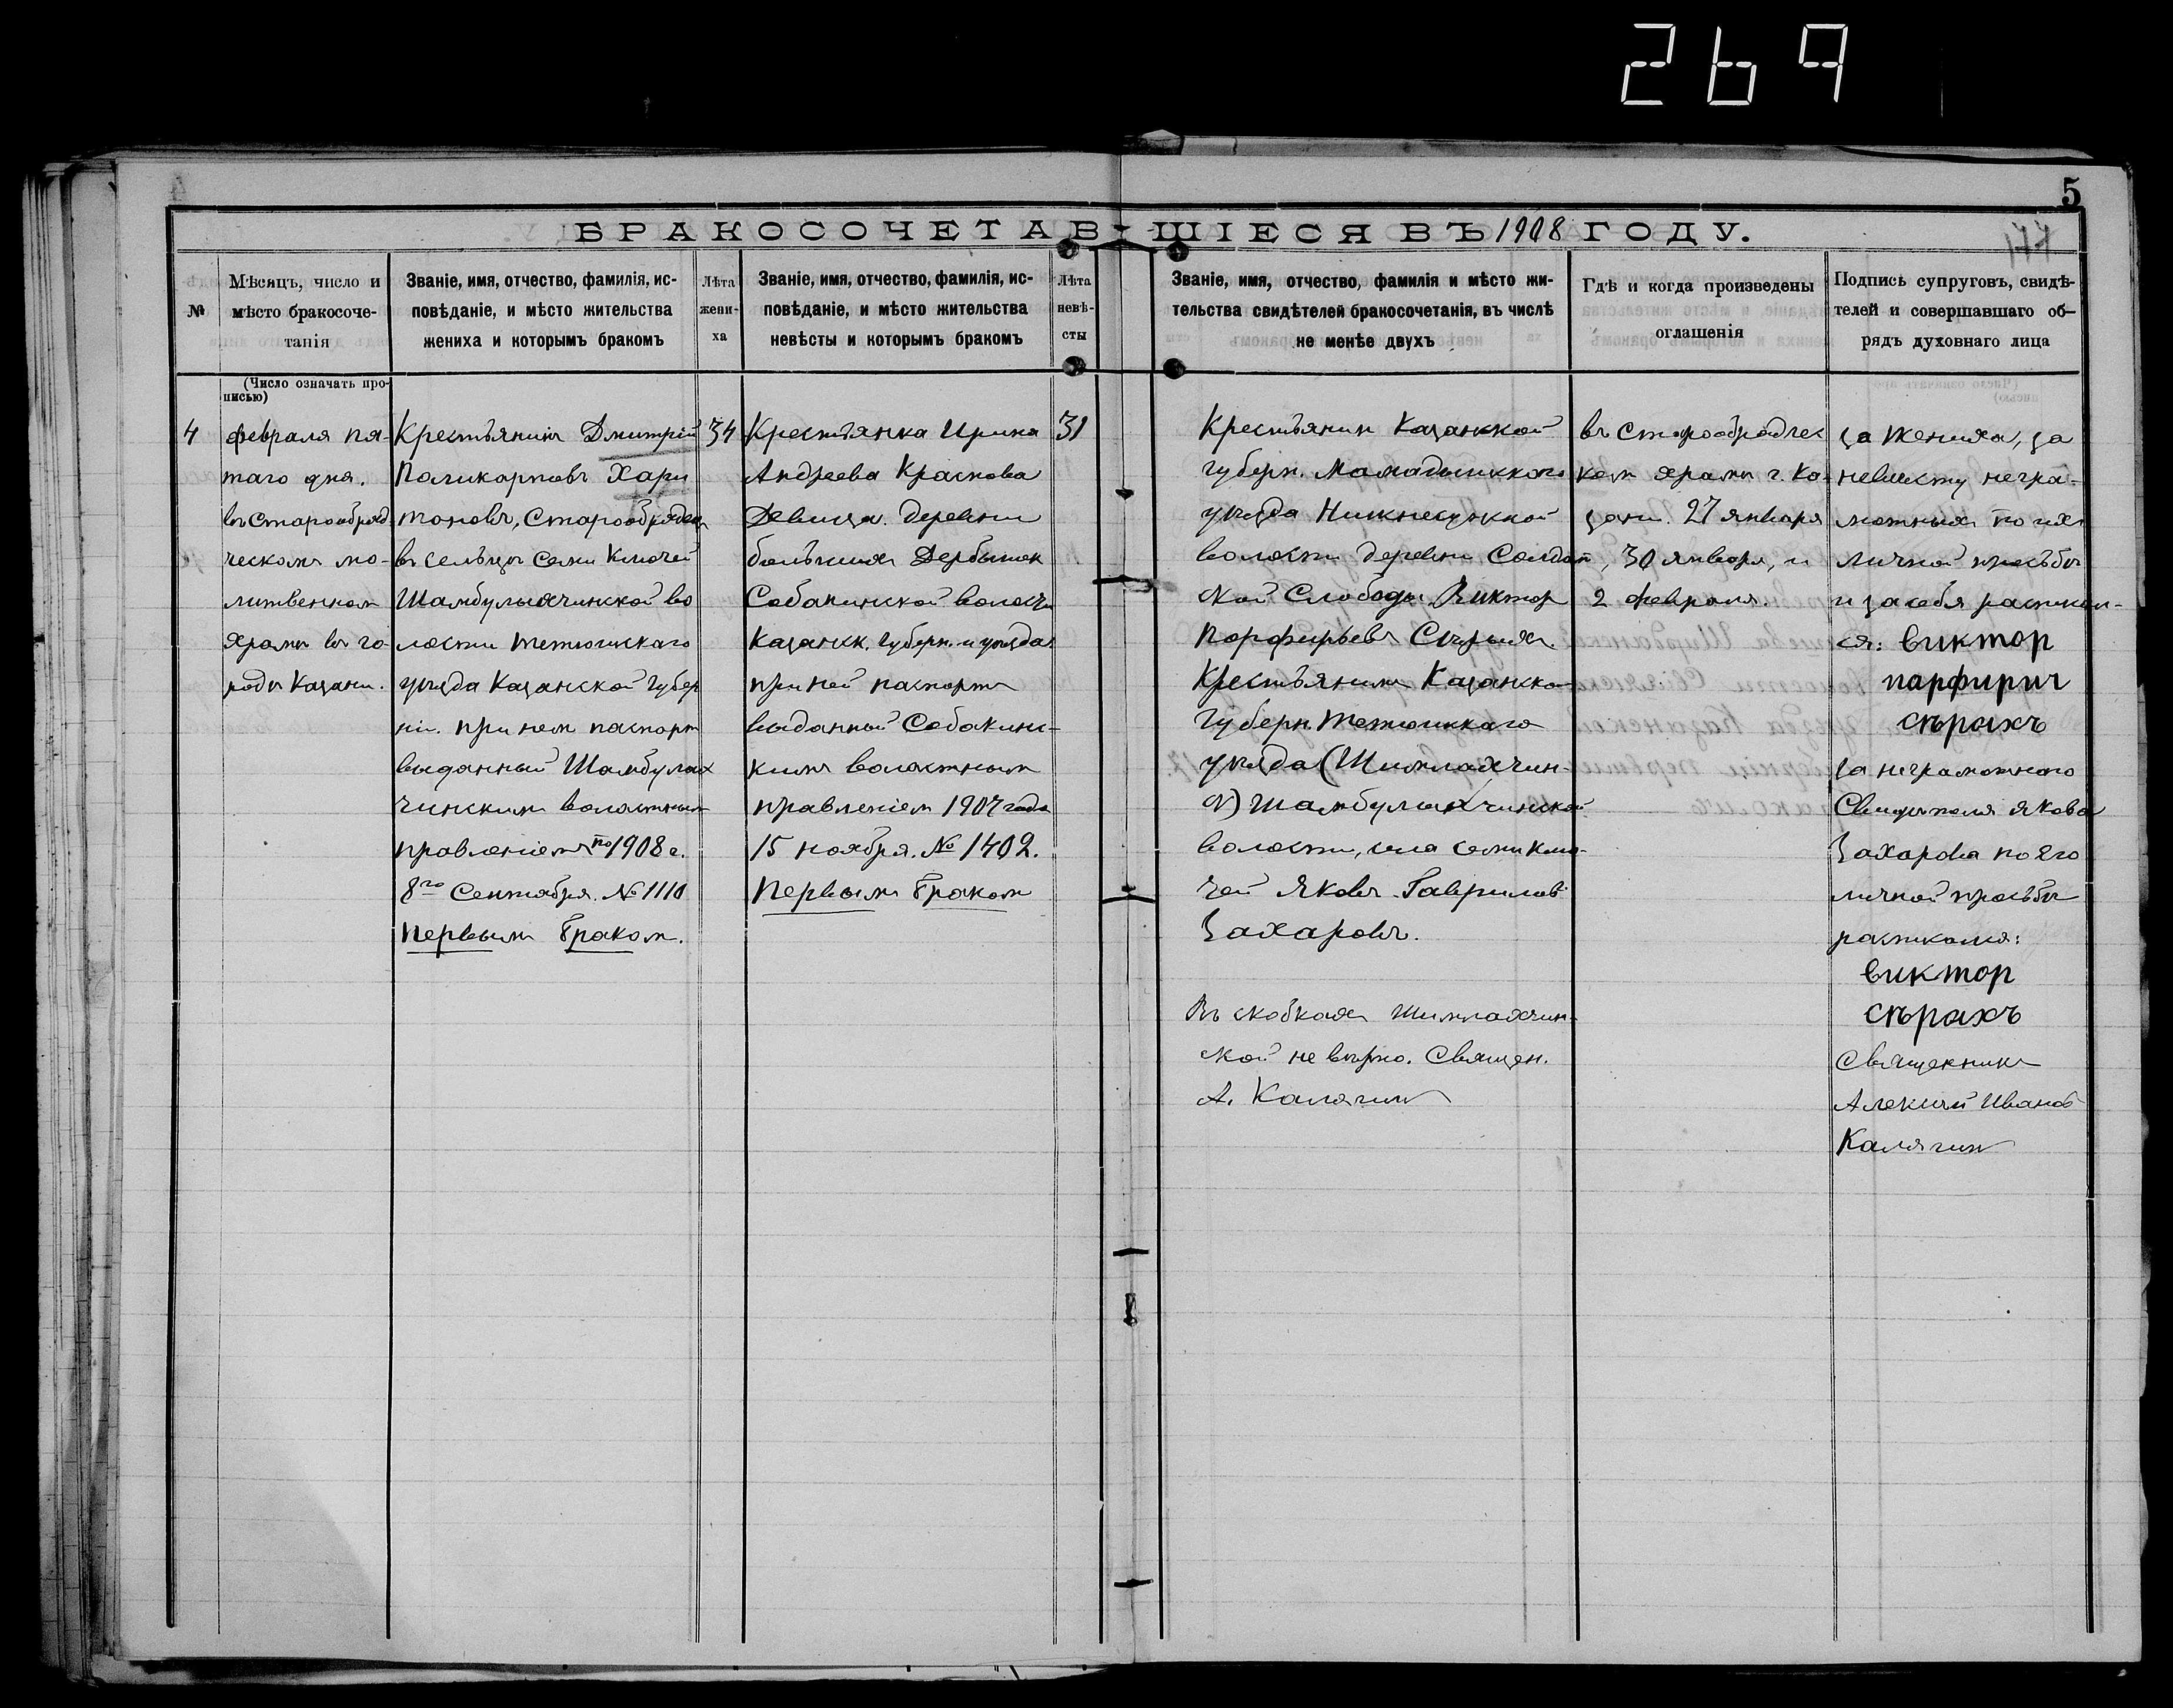 269
5
БРАКОСОЧЕТАВШІЕСЯ ВЪ 1908 ГОДУ.
№
Мѣсяцъ, число и
мѣсто бракосоче-
танія
Званіе, имя, отчество, фамилія, ис-
повѣданіе, и мѣсто жительства
жениха и которымъ бракомъ
Лѣта
жени-
ха
Званіе, имя, отчество, фамилія, ис-
повѣданіе, и мѣсто жительства
невѣсты и которымъ бракомъ
Лѣта
невѣ-
сты
Званіе, имя, отчество, фамилія и мѣсто жи-
тельства свидѣтелей бракосочетанія, въ числѣ
не менѣе двухъ
Гдѣ и когда произведены
оглашенія
Подпись супруговъ, свидѣ-
телей и совершавшаго об-
рядъ духовнаго лица
(Число означать про-
писью)
4
февраля пя-
таго дня.
въ старообряд
ческомъ мо-
литвенном
храмѣ въ го-
родѣ Казани.
Крестьянинъ Дмитрій
Поликарповъ Хари
тоновъ, Старообрядец
въ сельцѣ Семи Ключей
Шамбулыхчинской во
лости Тетюшскаго
уѣзда Казанской Губер
ніи. при нем паспорт
выданный Шамбулых
чинским волостным
правленіемъ по 1908 г.
8го Сентября. № 1110
Первым браком.
34
Крестьянка Ирина
Андреева Краснова
Девица. деревни
больших Дербышек
Собакинской волости
Казанск. Губерн. и уѣзда
при ней паспортъ
выданный Собакинс-
кимъ волостным
правленіем 1907 года
15 ноября. № 1402.
Первым браком
31
Крестьянин Казанской
Губерн. Мамадышскаго
уѣзда Нижнесунской
волости деревни Солдат
ской Слободы Виктор
Порфирьевъ Сѣрыхъ.
Крестьянинъ Казанской
Губерн. Тетюшскаго
уѣзда (Шимлахчин-
й) Шамбулыхчинской
волости, села семи клю-
чей Яковъ Гаврилов
Захаровъ.
Въ скобкахъ Шимлахчин-
ской не вѣрно. Священ.
А. Калягинъ
въ Старообрядчес
комъ храмѣ г. Ка-
зани. 27 января
, 30 января, и
2 февраля.
за жениха, за
невѣсту негра-
мотныхъ по ихъ
личной просьбѣ
и за себя расписал-
ся: виктор
парфирич
сѣрыхъ
За неграмотнаго
Свидѣтеля Якова
Захарова по его
личной просьбѣ
расписался:
виктор
сѣрыхъ
Священникъ
Алексѣй Иванов
Калягинъ